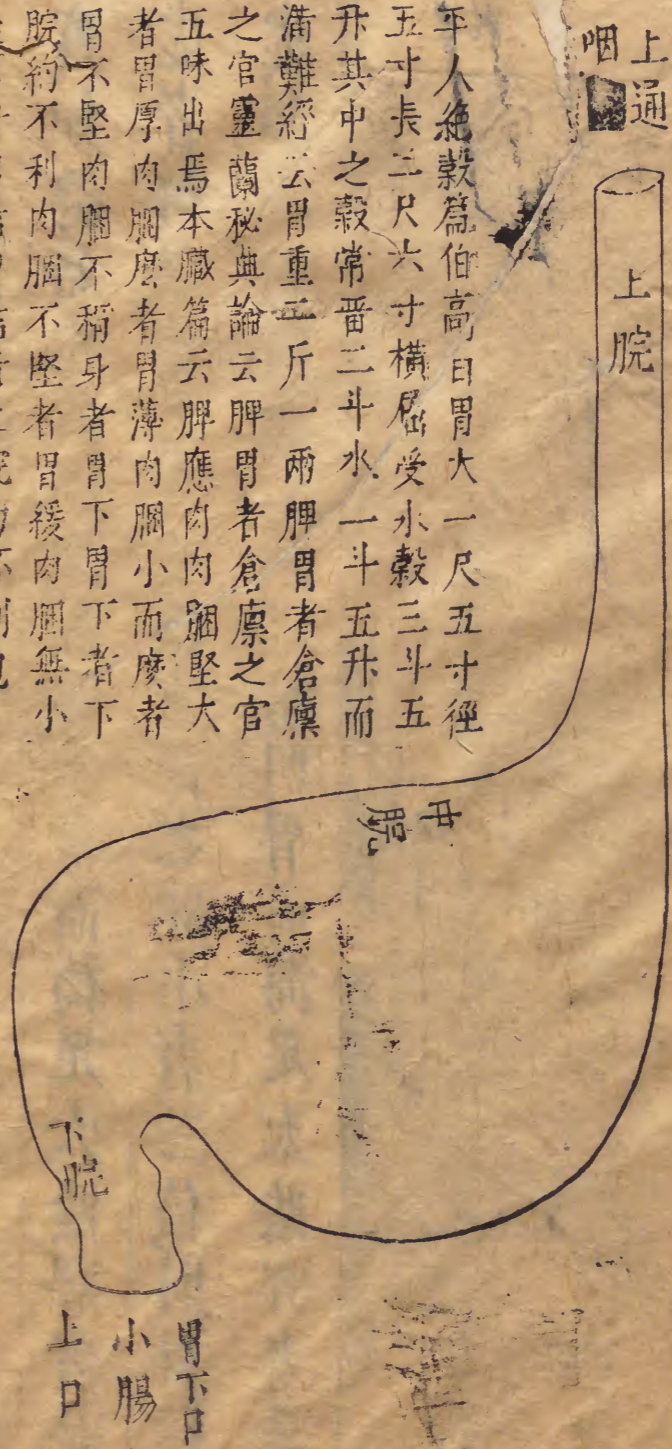 上通
咽
上脘
平人絶穀篇伯髙曰胃大一尺五寸徑
五寸長二尺六寸橫屈受水穀三斗五
升其中之穀常畱二斗水一斗五升而
滿難經云胃重二斤一兩脾胃者倉廩
之官靈蘭秘典論云脾胃者倉廩之官
五味出焉本臟篇云脾應肉肉䐃堅大
者胃厚肉䐃麽者胃薄肉䐃小而麽者
胃不堅肉䐃不稱身者胃下胃下者下
脘約不利肉䐃不堅者胃緩肉䐃無小
中
脘
下脘
胃下口
小腸
上口